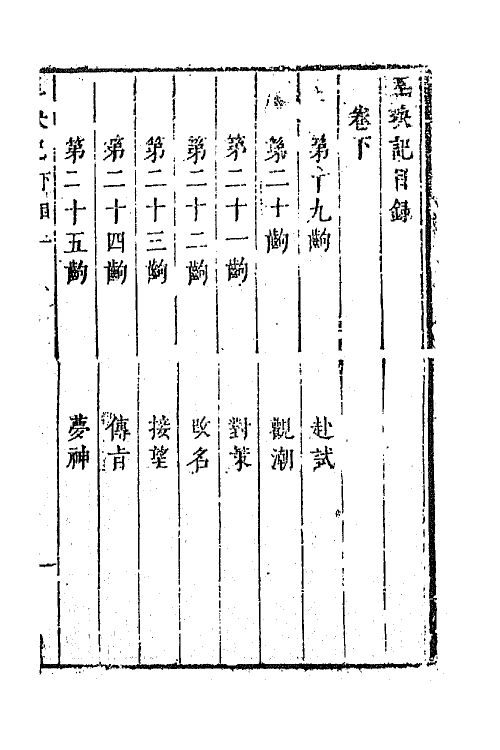 玉玦記目錄
卷下
第十九齣 赴試
第二十齣 觀潮
第二十一齣 對策
第二十二齣 改名
第二十三齣 接望
第二十四齣 傳旨
第二十五齣 夢神